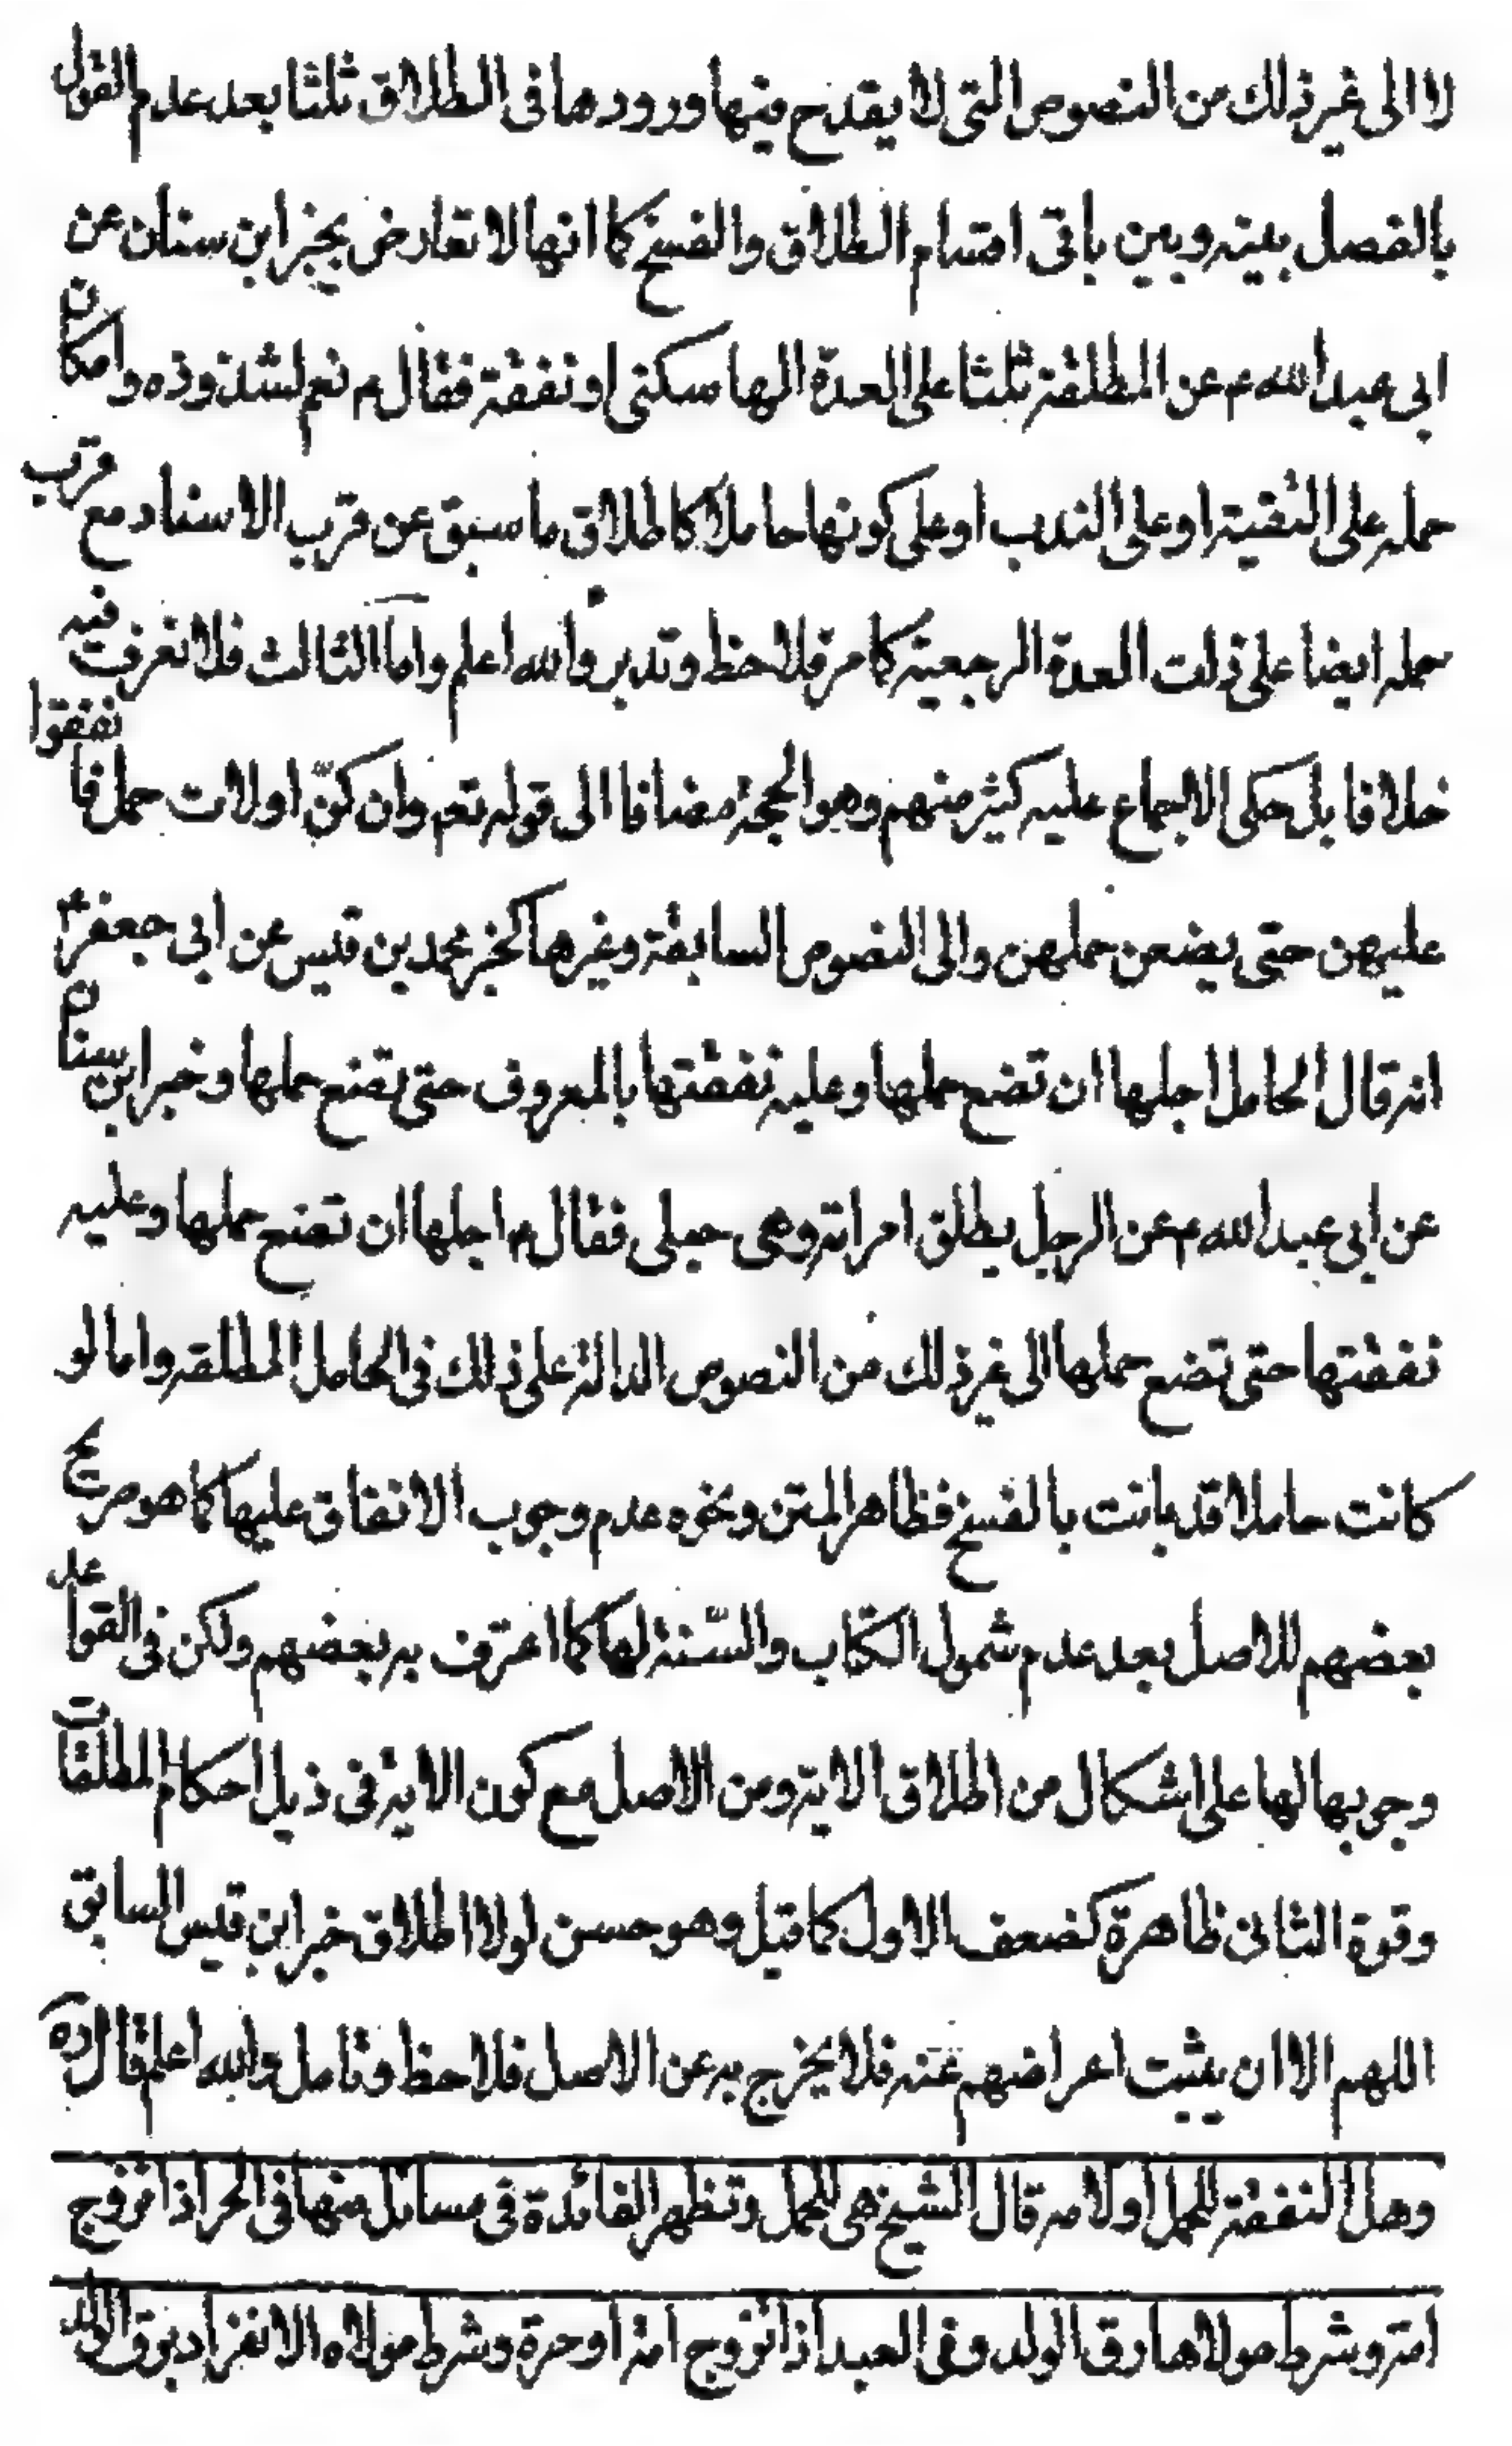 لا الى غير ذلك من النصوص التى لا يقدح فيها ورودها فى الطلاق ثلثا بعد عدم القول
بالفصل بينه وبين باقى اقسام الطلاق والفسخ كما انها لا تعارض بخبر ابن سنان عن
ابى عبد الله ع عن المطلقة ثلثا على العدة الها سكنى او نفقة فقال ع نعم لشذوذه وامكان
حمله على التقية او على الندب او على كونها حاملا كاطلاق ما سبق عن قرب الاسناد مع قرب
حمله ايضا على ذات العدة الرجعية كما مر فلاحظ وتدبر والله اعلم واما الثالث فلا نعرف فيه
خلافا بل حكى الاجماع عليه كثير منهم وهو الحجة مضافا الى قوله تعم وان كنّ اولات حمل فانفقوا
عليهن حتى يضعن حملهن والى النصوص السابقة وغيرها كخبر محمد بن قيس عن ابى جعفر ع
انه قال الحامل اجلها ان تضع حملها وعليه نفقتها بالمعروف حتى تضع حملها وخبر ابن سنان
عن ابى عبد الله ع عن الرجل يطلق امراته وهى حبلى فقال ع اجلها ان تضع حملها وعليه
نفقتها حتى تضع حملها الى غير ذلك من النصوص الدالة على ذلك فى الحامل المطلقه واما لو
كانت حاملا قد بانت بالفسخ فظاهر المتن ونحوه عدم وجوب الانفاق عليها كما هو صريح
بعضهم للاصل بعد عدم شمول الكتاب والسّنة لها كما اعترف به بعضهم ولكن فى القواعد
وجوبها لها على اشكال من اطلاق الاية ومن الاصل مع كون الاية فى ذيل احكام المطلقات
وقوة الثانى ظاهرة كضعف الاول كما قيل وهو حسن لولا اطلاق خبر ابن قيس السابق
اللهم الا ان يثبت اعراضهم عنه فلا يخرج به عن الاصل فلاحظ وتامل والله اعلم قال ره
وهل النفقة للحمل او لامه قال الشيخ هى للحمل وتظهر الفائدة فى مسائل منها فى الحر اذا تزوج
امة وشرط مولاها رق الولد وفى العبد اذا تزوج امة او حرة وشرط مولاه الانفراد برق الولد